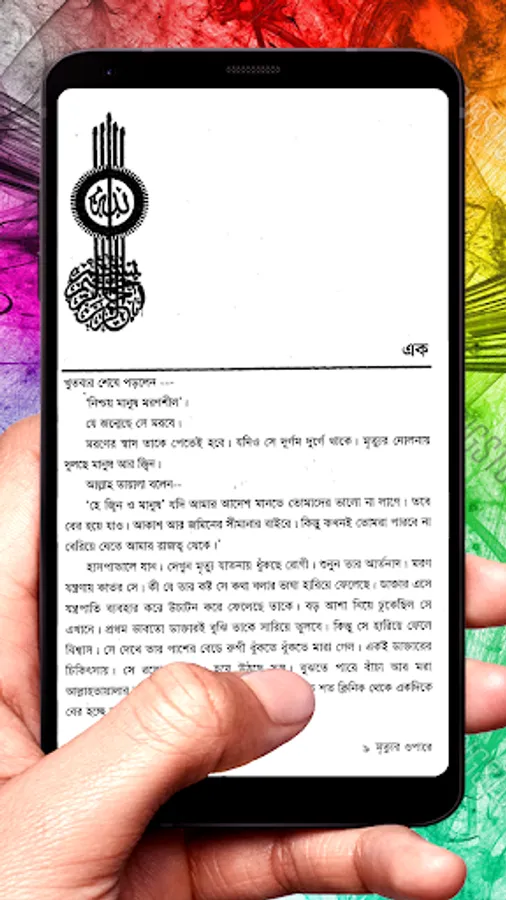 এক
খুতবার শেষে পড়লেন ---
'নিশ্চয় মানুষ মরণশীল'।
যে জন্মেছে সে মরবে।
মরণের স্বাদ তাকে পেতেই হবে। যদিও সে দুর্গম দুর্গে থাকে। মৃত্যুর দোলনায়
দুলছে মানুষ আর জ্বিন।
আল্লাহ তায়ালা বলেন--
'হে জ্বিন ও মানুষ' যদি আমার আদেশ মানতে তোমাদের ভালো না লাগে। তবে
বের হয়ে যাও। আকাশ আর জমিনের সীমানার বাইরে। কিন্তু কখনই তোমরা পারবে না
বেরিয়ে যেতে আমার রাজত্ব থেকে।'
হাসপাতালে যান। দেখুন মৃত্যু যাতনায় ধুঁকছে রোগী। শুনুন তার আর্তনাদ। মরণ
যন্ত্রণায় কাতর সে। কী যে তার কষ্ট সে কথা বলার ভাষা হারিয়ে ফেলেছে। ডাক্তার এসে
যন্ত্রপাতি ব্যবহার করে উচাটন করে ফেলেছে তাকে। বড় আশা নিয়ে ঢুকেছিল সে
এখানে। প্রথম ভাবতো ডাক্তারই বুঝি তাকে সারিয়ে তুলবে। কিন্তু সে হারিয়ে ফেলে
বিশ্বাস। সে দেখে তার পাশের বেডে রুগী ধুঁকতে ধুঁকতে মারা গেল। একই ডাক্তারের
চিকিৎসায়। সে হয়ে উঠেছে বুঝতে পারে বাঁচা আর মরা
আল্লাহতায়ালার শত ক্লিনিক থেকে একদিকে
বের হচ্ছে
৯ মৃত্যুর ওপারে